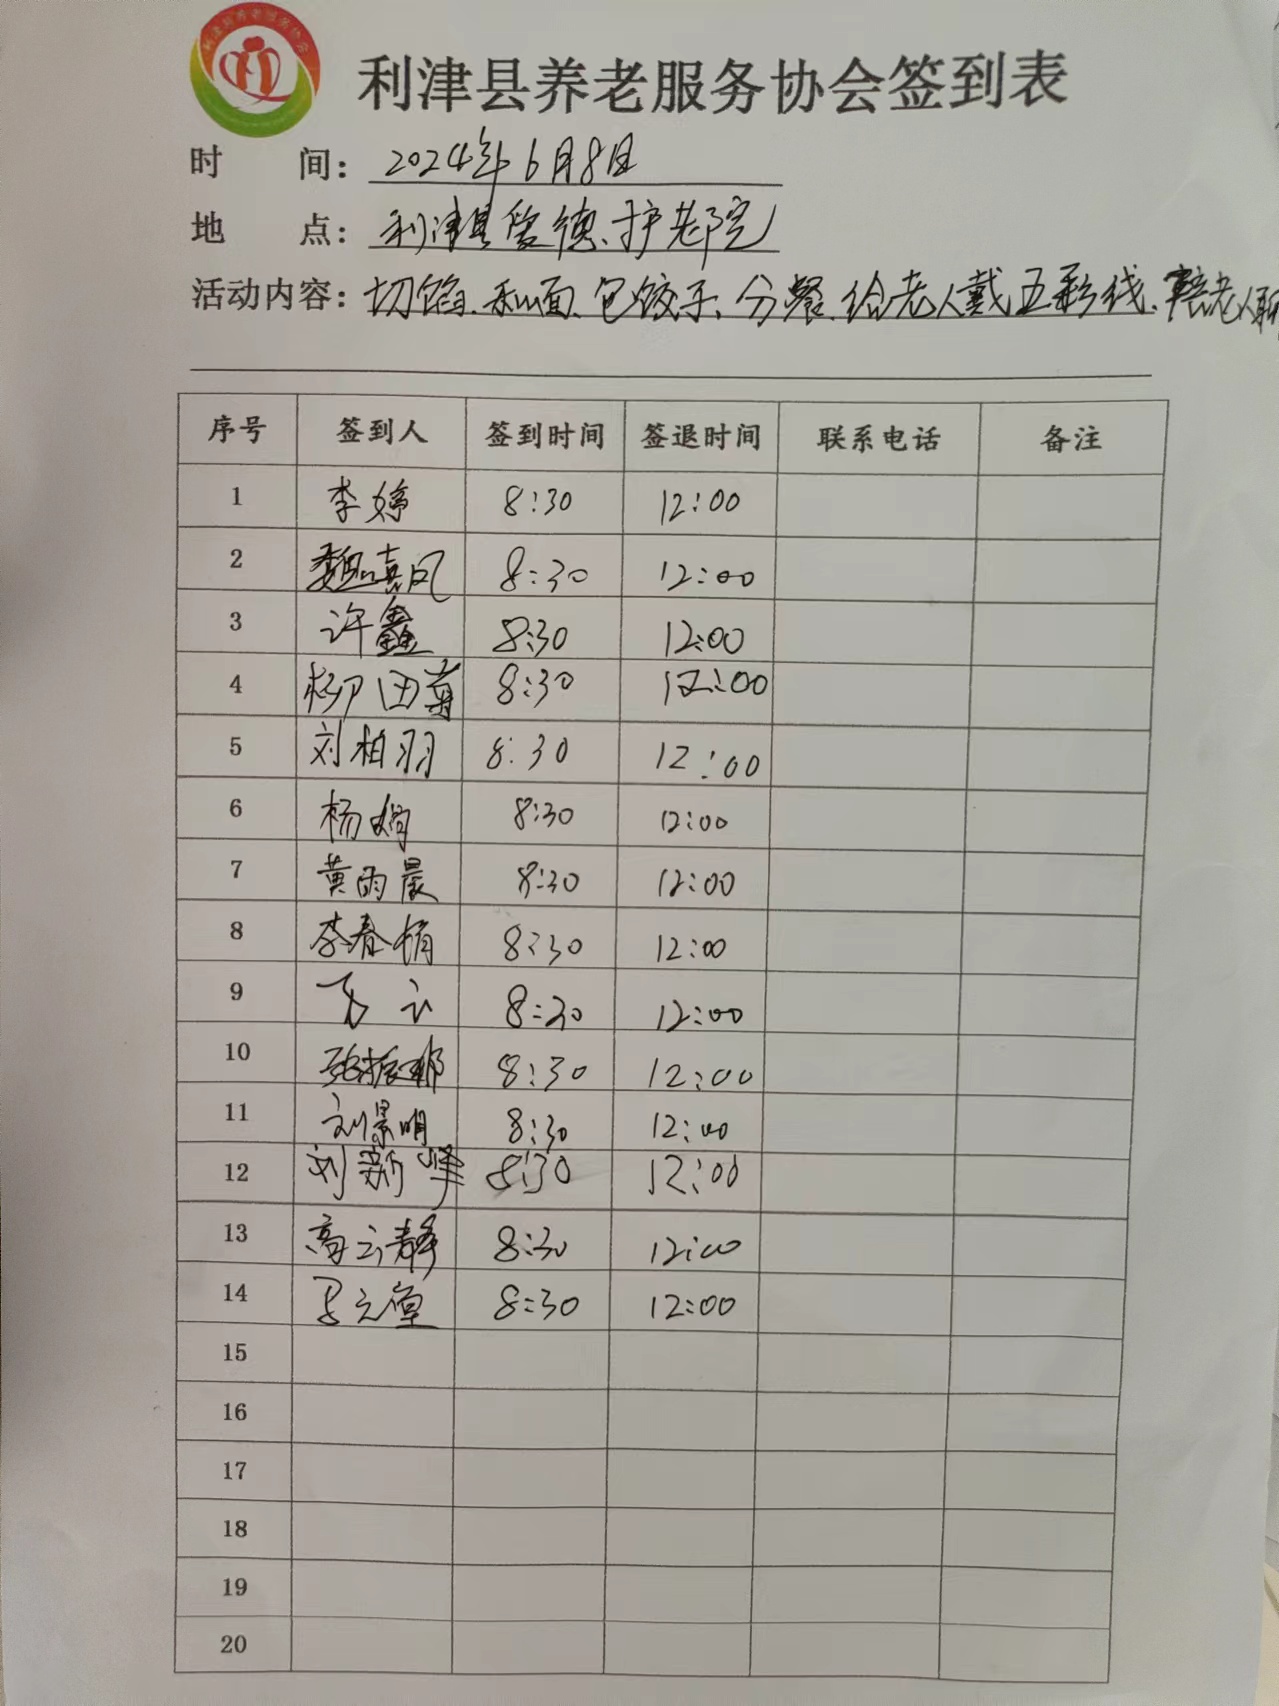 利津县养老服务协会
利津县养老服务协会签到表
时 间：2024年6月8日
地 点：利津县馨德、护老院
活动内容：切馅、和面、包饺子、分餐、给老人戴五彩线、陪老人聊
序号 签到人 签到时间 签退时间 联系电话 备注
1 李婷 8:30 12:00
2 魏嘉风 8:30 12:00
3 许鑫 8:30 12:00
4 柳田菊 8:30 12:00
5 刘柏羽 8:30 12:00
6 杨娟 8:30 12:00
7 黄雨晨 8:30 12:00
8 李春梅 8:30 12:00
9 8:30 12:00
10 张振 8:30 12:00
11 刘景明 8:30 12:00
12 刘新华 8:30 12:00
13 高云静 8:30 12:00
14 8:30 12:00
15
16
17
18
19
20